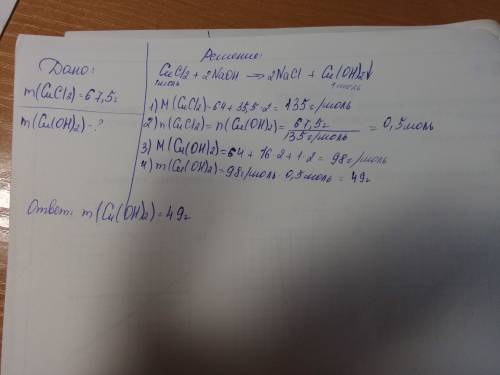 Дано:
m(CuCl2)=67,5г
m(Cu(OH)2)-?
Решение:
CuCl2 + 2NaOH → 2NaCl + Cu(OH)2↓
1моль 1моль
1) M(CuCl2)=64+35,5·2=135г/моль
2) n(CuCl2)=n(Cu(OH)2)=67,5г/135г/моль = 0,5моль
3) M(Cu(OH)2)=64+16·2+1·2=98г/моль
4) m(Cu(OH)2)=98г/моль·0,5моль=49г
Ответ: m(Cu(OH)2)=49г